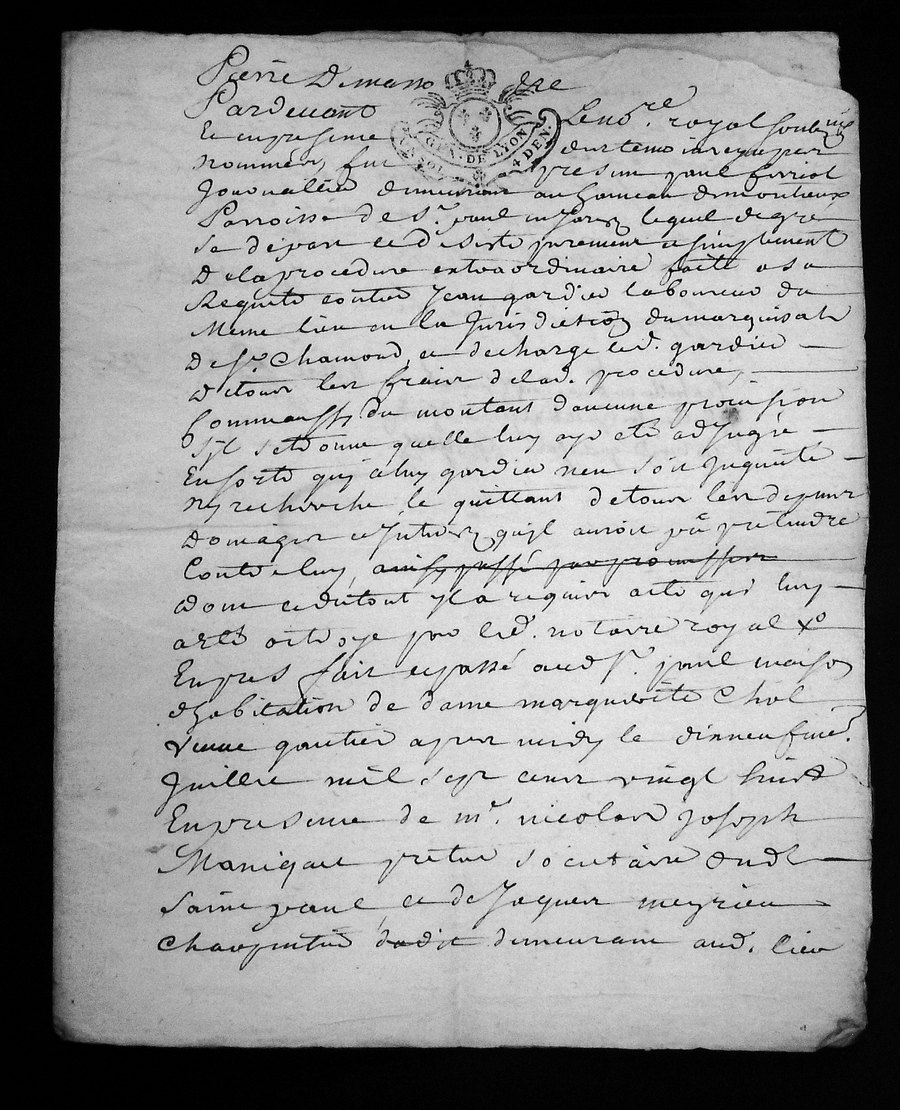 Pierre
Pardevant Le no.re royal soub.né
Et en presence des temoins cy apres
nommés, fut present paul
Journallier demeurant au hameau de
Parroisse de S.t paul en Jarest, lequel de gré
se depart et desiste purement et simplement
De la procedure extraordinaire faitte a sa
Requette contre Jean gardier laboureur du
Meme lieu en la Jurisdiction du marquisat
De S.t Chamond, et decharge led. gardier
de tous les frais de lad. procedure,
Comm'aussy du montant d'aucune provision
Sy'l setrouve quelle luy aye eté adjugée
En sorte qu'yceluy gardier n'en soit Inquietté
Ny recherché, le quittant de tous les depens
Domages et Interest qu'yl auroit pû pretendre
Contre luy, ainsy passé par promesses
Dont et du tout yl a requis acte qui luy
a eté octroyé par led. notaire royal
fait et passé aud. S.t paul maison
d'habitation de dame margueritte Chol
Veuve gautier apres midy le dixneufvie.
Juillet mil sept cent vingt huit
En presence de m.re nicolas Joseph
pretre socictaire dud.
Saint paul, et de Jaques meyrieu
Charpentier dudit demeurant aud. lieu
GEN. DE LYON
4 DEN.